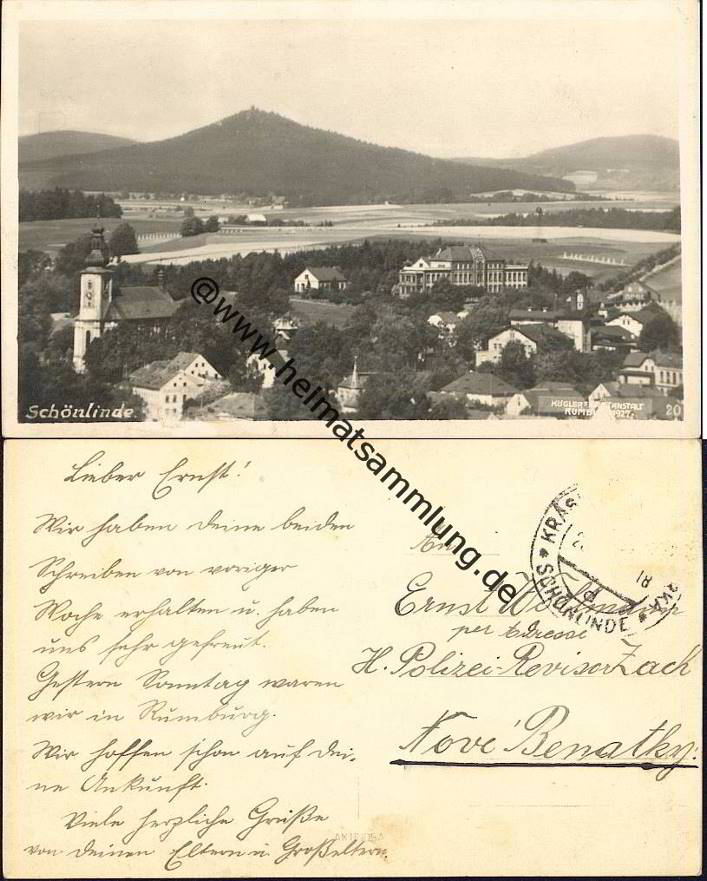 Schönlinde.
20
@www.heimatsammlung.de
Lieber Ernst!
Wir haben deine beiden
Schreiben von voriger
Woche erhalten u. haben
uns sehr gefreut.
Gestern Sonntag waren
wir in Rumburg.
Wir hoffen schon auf dei-
ne Ankunft.
Viele herzliche Grüße
von deinen Eltern u. Großeltern.
Ernst
per Adresse
H. Polizei-Revisor Zack
Nové Benatky.
SCHÖNLINDE